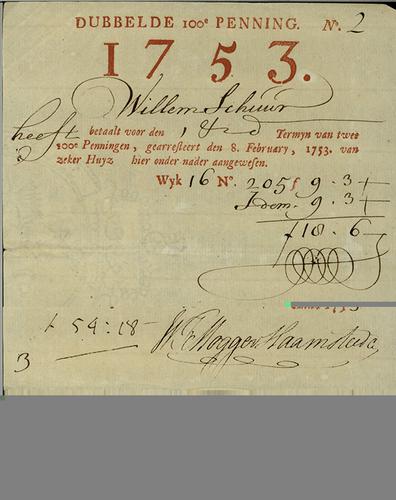 DUBBELDE 100e PENNING. No. 2
1753.
Willem Schuur
heeft betaalt voor den 1 & 2d Termyn van twee
100e Penningen, gearresteert den 8. February, 1753. van
zeker Huyz hier onder nader aangewesen.
Wyk 16 No. 205 f 9 . 3 +
Idem . 9 . 3 +
f 18 . 6 -
f 54 : 18 -
3